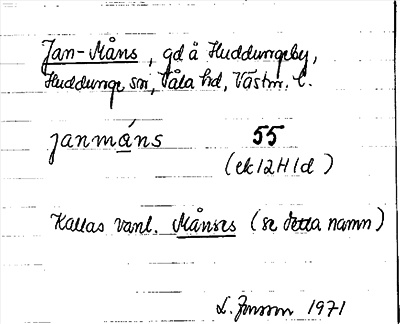 Jan-Måns, gd å Huddungeby,
Huddunge sn, Våla hd, Västm. l.
janmáns 55
(ek 12H1d)
Kallas vanl. Månses (se detta namn)
L. Jonsson 1971